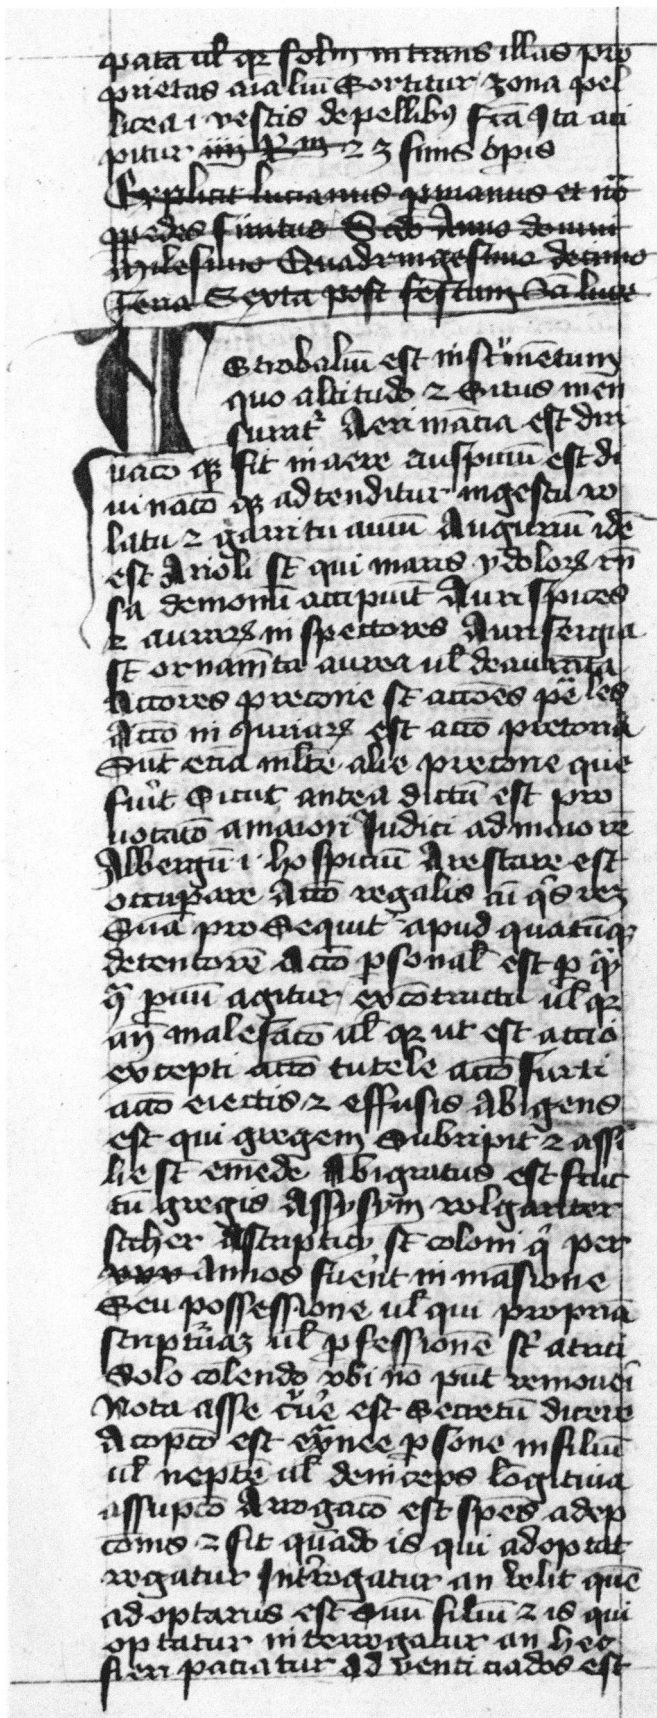 pata ul' qr solm in trans illas pro
prietas aialiu Sortitur zona pel
licea i vestis de pellibus fca Ita acci
pitur iiii R m 2 3 finis opis
Explicit lucianus p manus et no
p pedes finitus Sed Anno domini
Milesimo Quadringesimo decimo
Feria Sexta post festum Sci luce
A Strobaliu est instrumentum
quo altitudo 2 Situs men
surat Aerimancia est divi
nacio que fit in aere auspiciu est di
uinacio que adtenditur in gestu vo
latu 2 garritu auiu Auguriu ide
est Arioli st qui in aris ydolorum
sa demonu accipiut Auruspices
2 aurarum inspectores Aurifergia
st ornamta aurea ul' deaurata
Actores precone st accoes
Acco in iuriarum est acco pretoria
Sunt ecia mlte alie precone que
fiut Sicut antea dictu est pro
uocaco a maiori Judici ad maiore
Albergu i hospiciu Arestare est
occupare Acco regalis cu qs rez
Sua proSequit apud quatuqz
detentore Acco psonal est p qua
q priuu agitur ex cotractu ul' qr
an malefaco ul' qr ut est accio
excepti acco tutele acco furti
acco eiectis 2 effusis Abigens
est qui gregem Subripit 2 assi
lie st emede Abigratus est fruc
tu gregis Assysym volgariter
scher Ascripticii st coloni q per
xxx Annos fuerit in masione
Seu possessione ul' qui propria
scripturaz ul' pfessione st atricti
Solo colendo vbi no put remoueri
Nota asse est Secretu dicere
Adopco est exnee psone in filiu
ul' nepte ul' deinceps
assupco Arrogaco est spes adep
conis 2 fit quado is qui adoptat
rogatur Interrogatur an velit que
adoptarus est Suu filiu 2 is qui
optatur interrogatur an hec
fieri paciatur Ad venticiados est